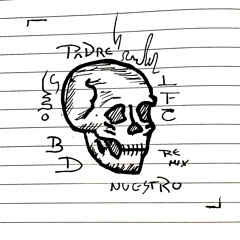 PADRE
L
F
C
B
D
RE
MIX
NUESTRO